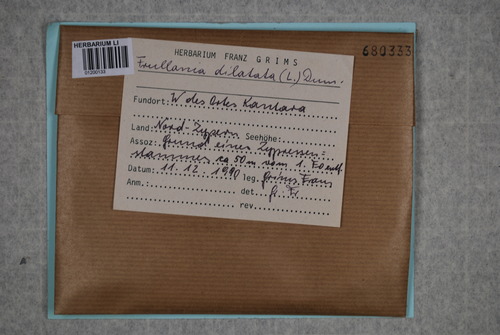 HERBARIUM LI
680333
HERBARIUM FRANZ GRIMS
Frullania dilatata (L.) Dum.
Fundort: W des Ortes Kantara
Land: Nord-Zypern Seehöhe:
Assoz: Grund eines Zypressen-
stammes ca 50m vom 1. F0
Datum: 11.12.1990 leg. Grims Franz
Anm.: det. G. Fr.
rev.